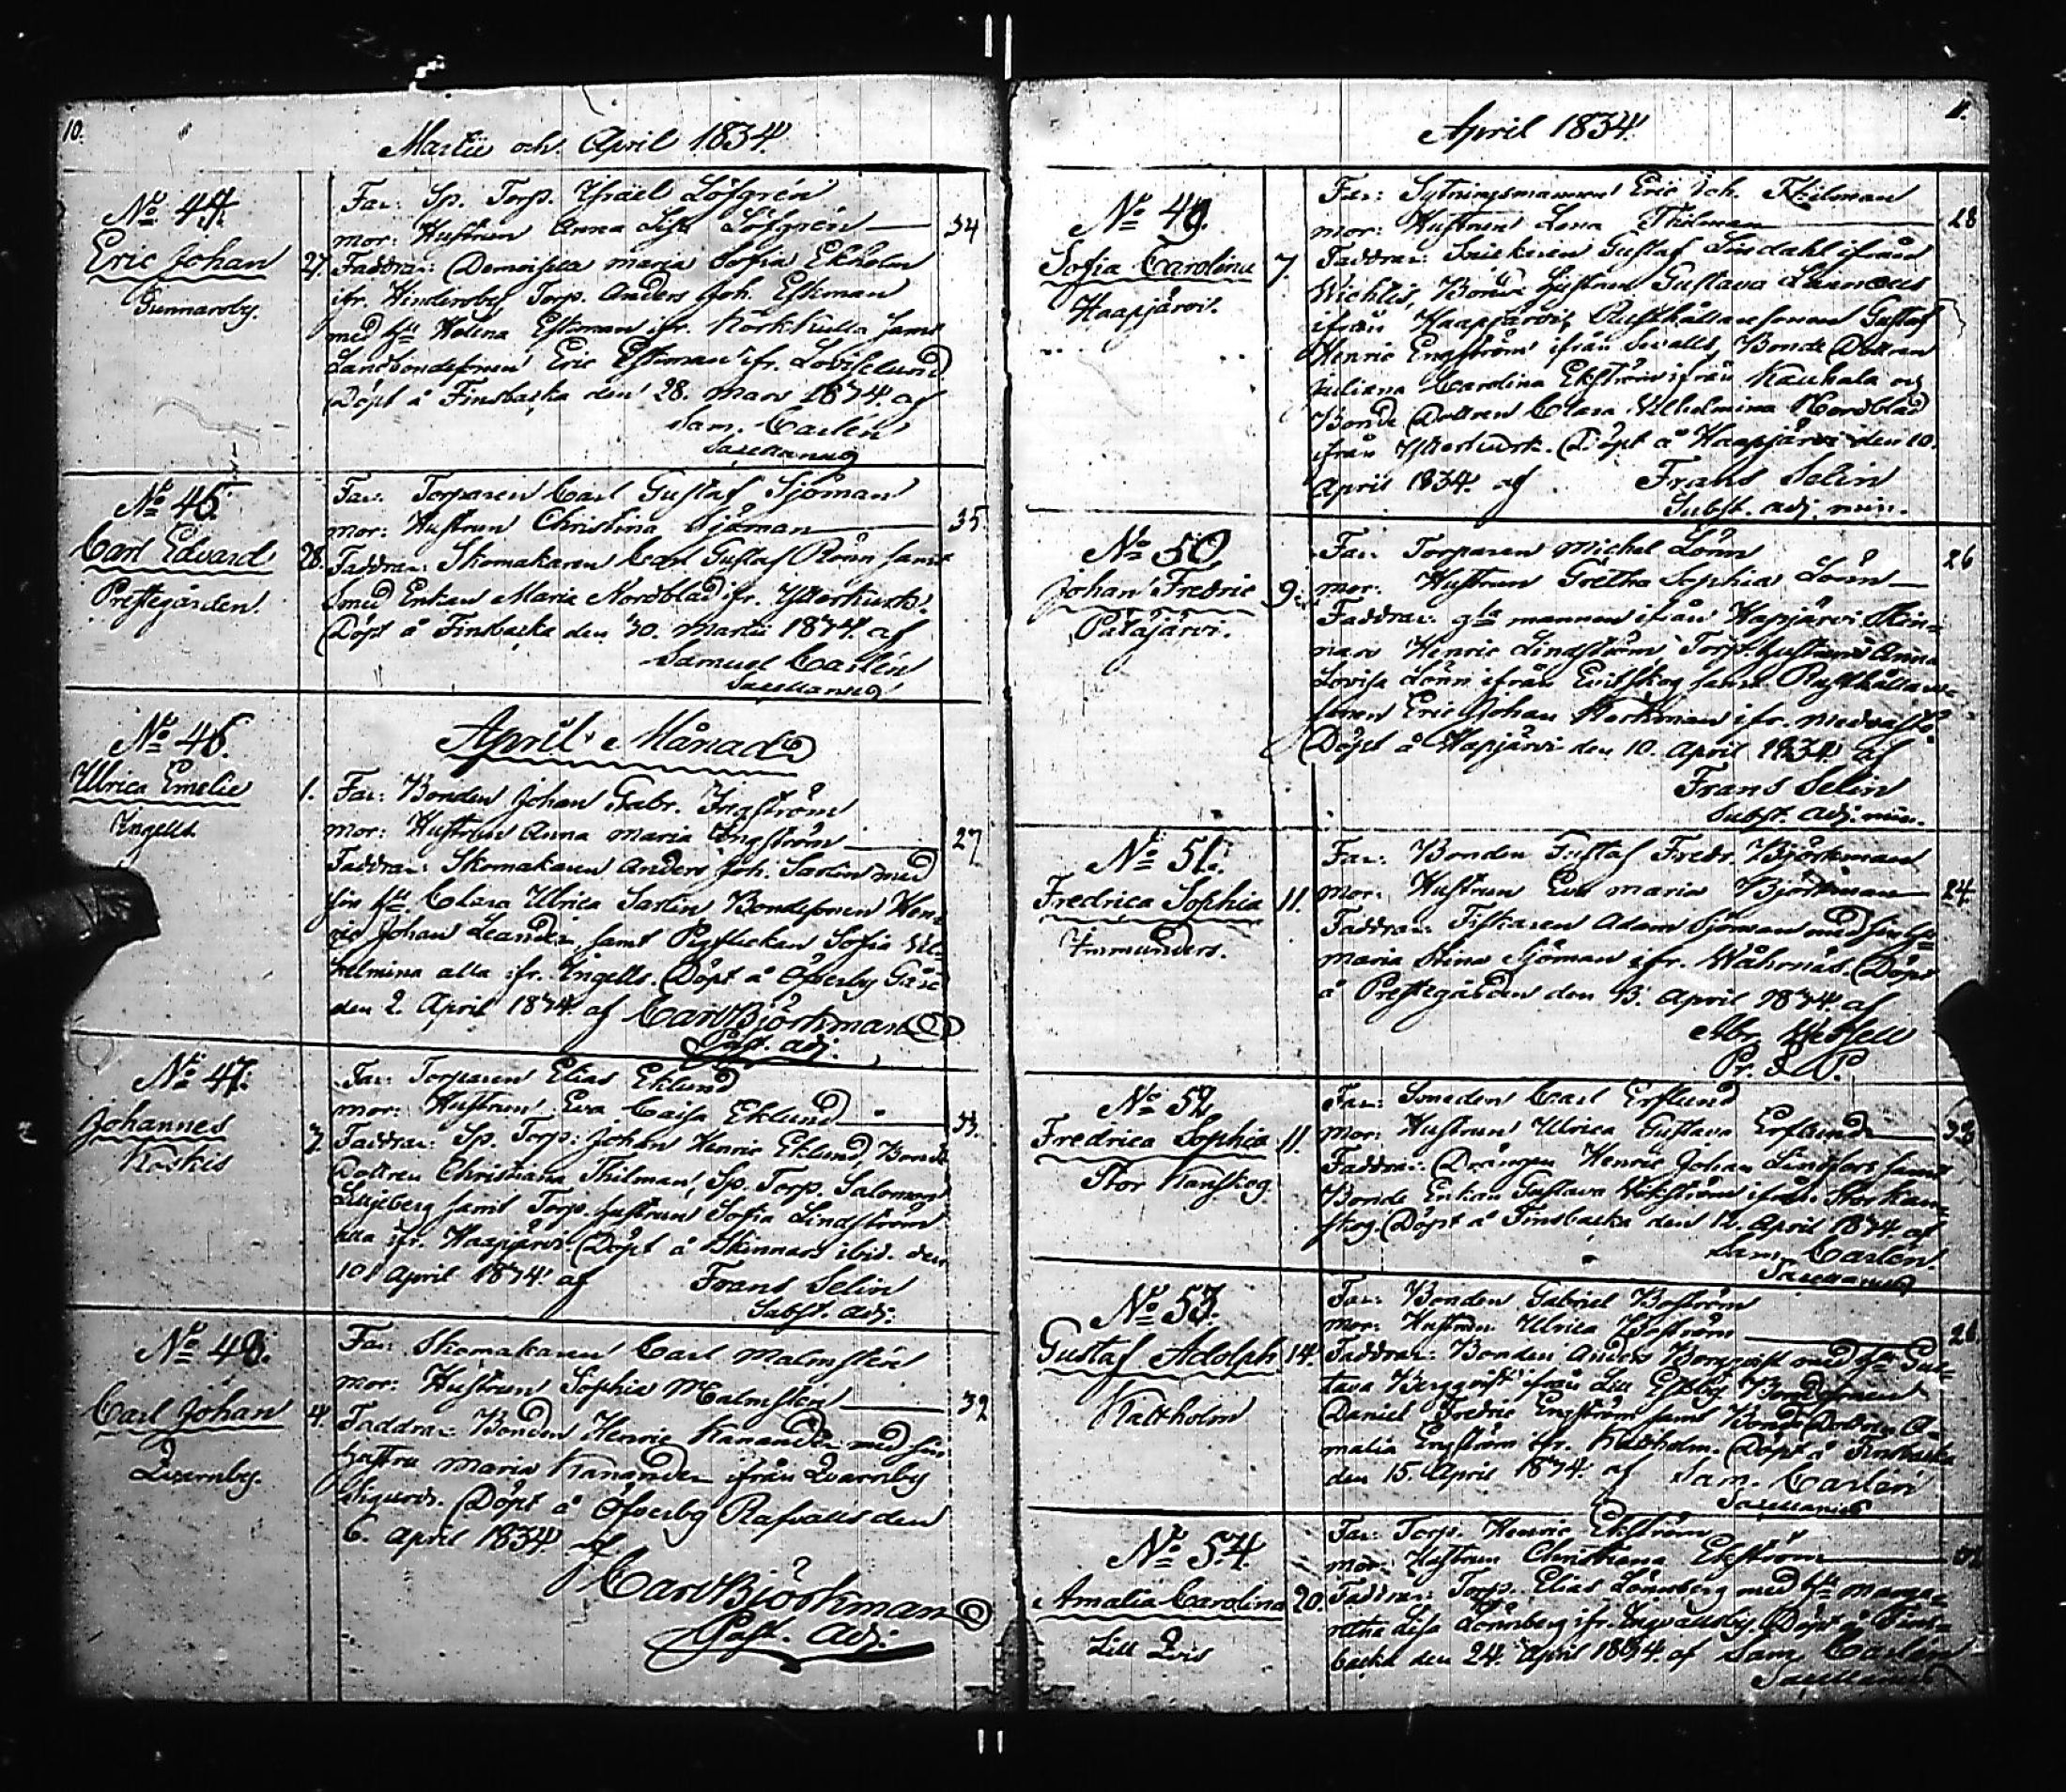 10.
Martii och April 1834.
No 44.
Eric Johan
Gunnarsby.
27.
Far: Sp. Torp. Israël Löfgrén
mor: Hustrun Anna Lisa Löfgrén
34
Faddrar: Demoiselle Maria Sofia Ekholm
ifr. Hindersby, Torp. Anders Joh. Eskman
med Hu Helena Eskman ifr. Körkkulla samt
Landbondesonen Eric Eskman ifr. Loviselund
Döpt å Finsbacka den 28. Mars 1834. af
Sam. Carlén
Sacellanus
No 45.
Carl Edvard
Prestegården.
28.
Far: Torparen Carl Gustaf Sjöman
mor: Hustrun Christina Sjöman
35
Faddrar: Skomakaren Carl Gustaf Rönn samt
Smed Enkan Maria Nordblad ifr. Ytterkurk.
Döpt å Finsbacka den 30. Martii 1834. af
Samuel Carlén
Sacellanus
No 46.
Ulrica Emelie
Ingells
1.
April Månad
Far: Bonden Johan Gabr. Ingström
mor: Hustrun Anna Maria Engström
27
Faddrar: Skomakaren Anders Joh. Sarlin med
sin Hu. Clara Ulrica Sarlin Bondesonen Hen-
ric Johan Leander, samt Pigflickan Sofia Wil-
helmina alla ifr. Ingells. Döpt å Öfverby Gård
den 2. April 1834. af Carl Björkman
Past. adj.
No 47.
Johannes
Koskis
7.
Far: Torparen Elias Eklund
mor: Hustrun Eva Caisa Eklund
33.
Faddrar: Sp. Torp: Johan Henric Eklund, Bonde
Dottren Christiana Thilman, Sp. Torp. Salomon
Liljeberg samt Torp. hustrun Sofia Lindström
ifr. Haapjärvi. Döpt å Skinnars ibid. den
10 April 1834. af Frans Selin
Subst. adj.
No 48.
Carl Johan
Qvarnby.
4.
Far: Skomakaren Carl Malmstén
mor: Hustrun Sophia Malmstén
32
Faddrar: Bonden Henric Kanander med sin
hustru Maria Kanander ifrån Qvarnby
Sigurds. Döpt å Öfverby Rafvalls den
6. April 1834. af
Carl Björkman
Past. adj.
11.
April 1834.
No 49.
Sofia Carolina
Haapjärvi.
7.
Far: Sytningsmannen Eric Joh. Thilman
mor: Hustrun Lena Thilman
28
Faddrar: Snickaren Gustaf Lindahl ifrån
Wichtis, Bonde Hustrun Gustava
ifrån Haapjärvi, Rusthållaresonen Gustaf
Henric Engström ifrån Sevalls, Bonde Dottren
Juliana Carolina Ekström ifrån Kauhala och
Bonde Dottren Clara Wilhelmina Nordblad
ifrån Ytterkurk. Döpt å Haapjärvi den 10.
April 1834. af Frans Selin
Subst. adj. min.
No 50
Johan Fredric
Palajärvi.
9.
Far: Torparen Michel Lönn
mor: Hustrun Gretha Sophia Lönn
26
Faddrar: gla mannen ifrån Hapjärvi Skin-
nars Henric Lindström Torp. hustrun Anna
Lovisa Lönn ifrån Evitskog samt Rusthållare-
sonen Eric Johan Korkman ifr.
Döpt å Hapjärvi den 10. April 1834. af
Frans Selin
Subst. adj. min.
No 51.
Fredrica Sophia
Immunders.
11.
Far: Bonden Gustaf Fredr. Björkman
mor: Hustrun Eva Maria Björkman
24
Faddrar: Fiskaren Adam Sjöman med sin Hu
Maria Stina Sjöman ifr. Wåhrnäs. Döpt
å Prestegården den 13. April 1834. af
Abr.
Pr. & P.
No 52
Fredrica Sophia
Stor Kanskog
11.
Far: Smeden Carl Erslund
mor: Hustrun Ulrica Gustava Erslund
Faddrar: Drängen Henric Johan Lindfors samt
Bonde Enkan Gustava Wikström ifrån Stor Kan-
skog. Döpt å Finsbacka den 12. April 1834. af
Sam. Carlén.
Sacellanus
No 53.
Gustaf Adolph
Kaltholm
14.
Far: Bonden Gabriel Boström
mor: Hustrun Ulrica Boström
26.
Faddrar: Bonden Anders Bergqvist med Hu Gus-
tava Bergqvist ifrån Lill Estby Bondesonen
Daniel Fredric Engström samt Bonde Dottren A-
malia Engström ifr. Kaltholm. Döpt å Finsbacka
den 15. April 1834. af Sam. Carlén
Sacellanus
No 54.
Amalia Carolina
Lill Qvis
20.
Far: Torp. Henric Ekström
mor: Hustrun Christiana Ekström
Faddrar: Torp. Elias Lönnberg med Hu Marga-
retha Lisa Lönnberg ifr. Ingvallsby. Döpt å Fins-
backa den 24. April 1834. af Sam. Carlén
Sacellanus